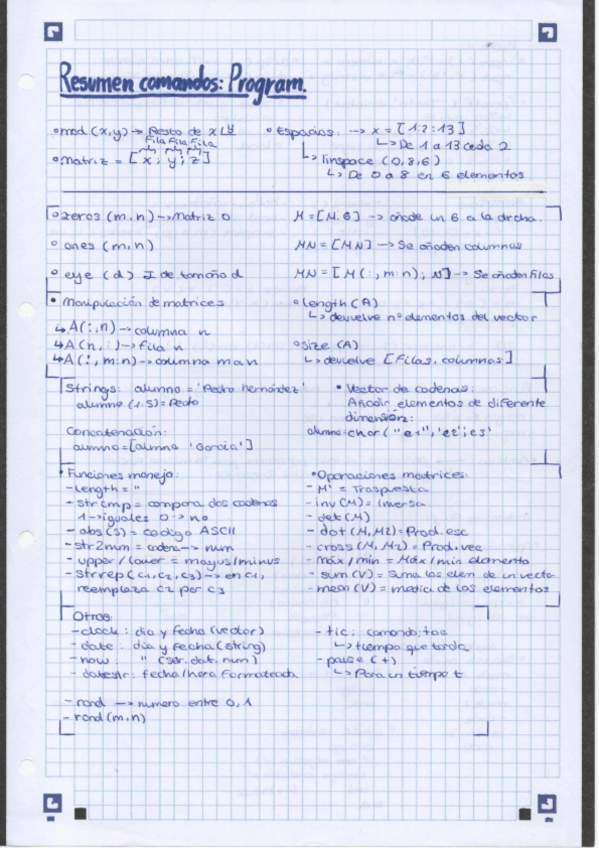 Resumen comandos: Program.
• mod (x,y) → Resto de x/y
Fila Fila Fila
• Matriz = [x; y; z]
• Espacios: → x = [1:2:13]
↳ De 1 a 13 cada 2
↳ linspace (0,8,6)
↳ De 0 a 8 en 6 elementos
• zeros (m,n) → Matriz 0
• ones (m,n)
• eye (d) I de tamaño d
M = [M, 6] → añade un 6 a la drcha.
MN = [M N] → Se añaden columnas
MN = [M(:,m:n); N] → Se añaden filas
• Manipulación de matrices
↳ A(:,n) → columna n
↳ A(n,:) → fila n
↳ A(:,m:n) → columna m a n
• length (A)
↳ devuelve nº elementos del vector
• size (A)
↳ devuelve [Filas, columnas]
Strings: alumno = 'Pedro Hernández'
alumno (1:5) = Pedro
Concatenación:
alumno = [alumno 'García']
• Vector de cadenas:
Añadir elementos de diferente
dimensión:
alumno = char ("e1", 'e2', e3'
• Funciones manejo:
- length = "
- strcmp = compara dos cadenas
1 → iguales 0 → no
- abs(s) = código ASCII
- str2num = cadena → num
- upper / lower = mayus/minus
- strrep (c1, c2, c3) → en c1,
reemplaza c2 por c3
• Operaciones matrices:
- M' = Traspuesta
- inv (M) = Inversa
- det (M)
- dot (M, M2) = Prod. esc
- cross (M, M2) = Prod. vec
- max / min = Máx / min elemento
- sum (V) = Suma los elem de un vector
- mean (V) = media de los elementos
Otros:
- clock: dia y fecha (vector)
- date: día y fecha (string)
- now: " (ser. dat. num)
- datestr: fecha/hora formateada
- rand → numero entre 0,1
- rand (m,n)
- tic: comando; toc
↳ tiempo que tarda
- pause (t)
↳ Para un tiempo t